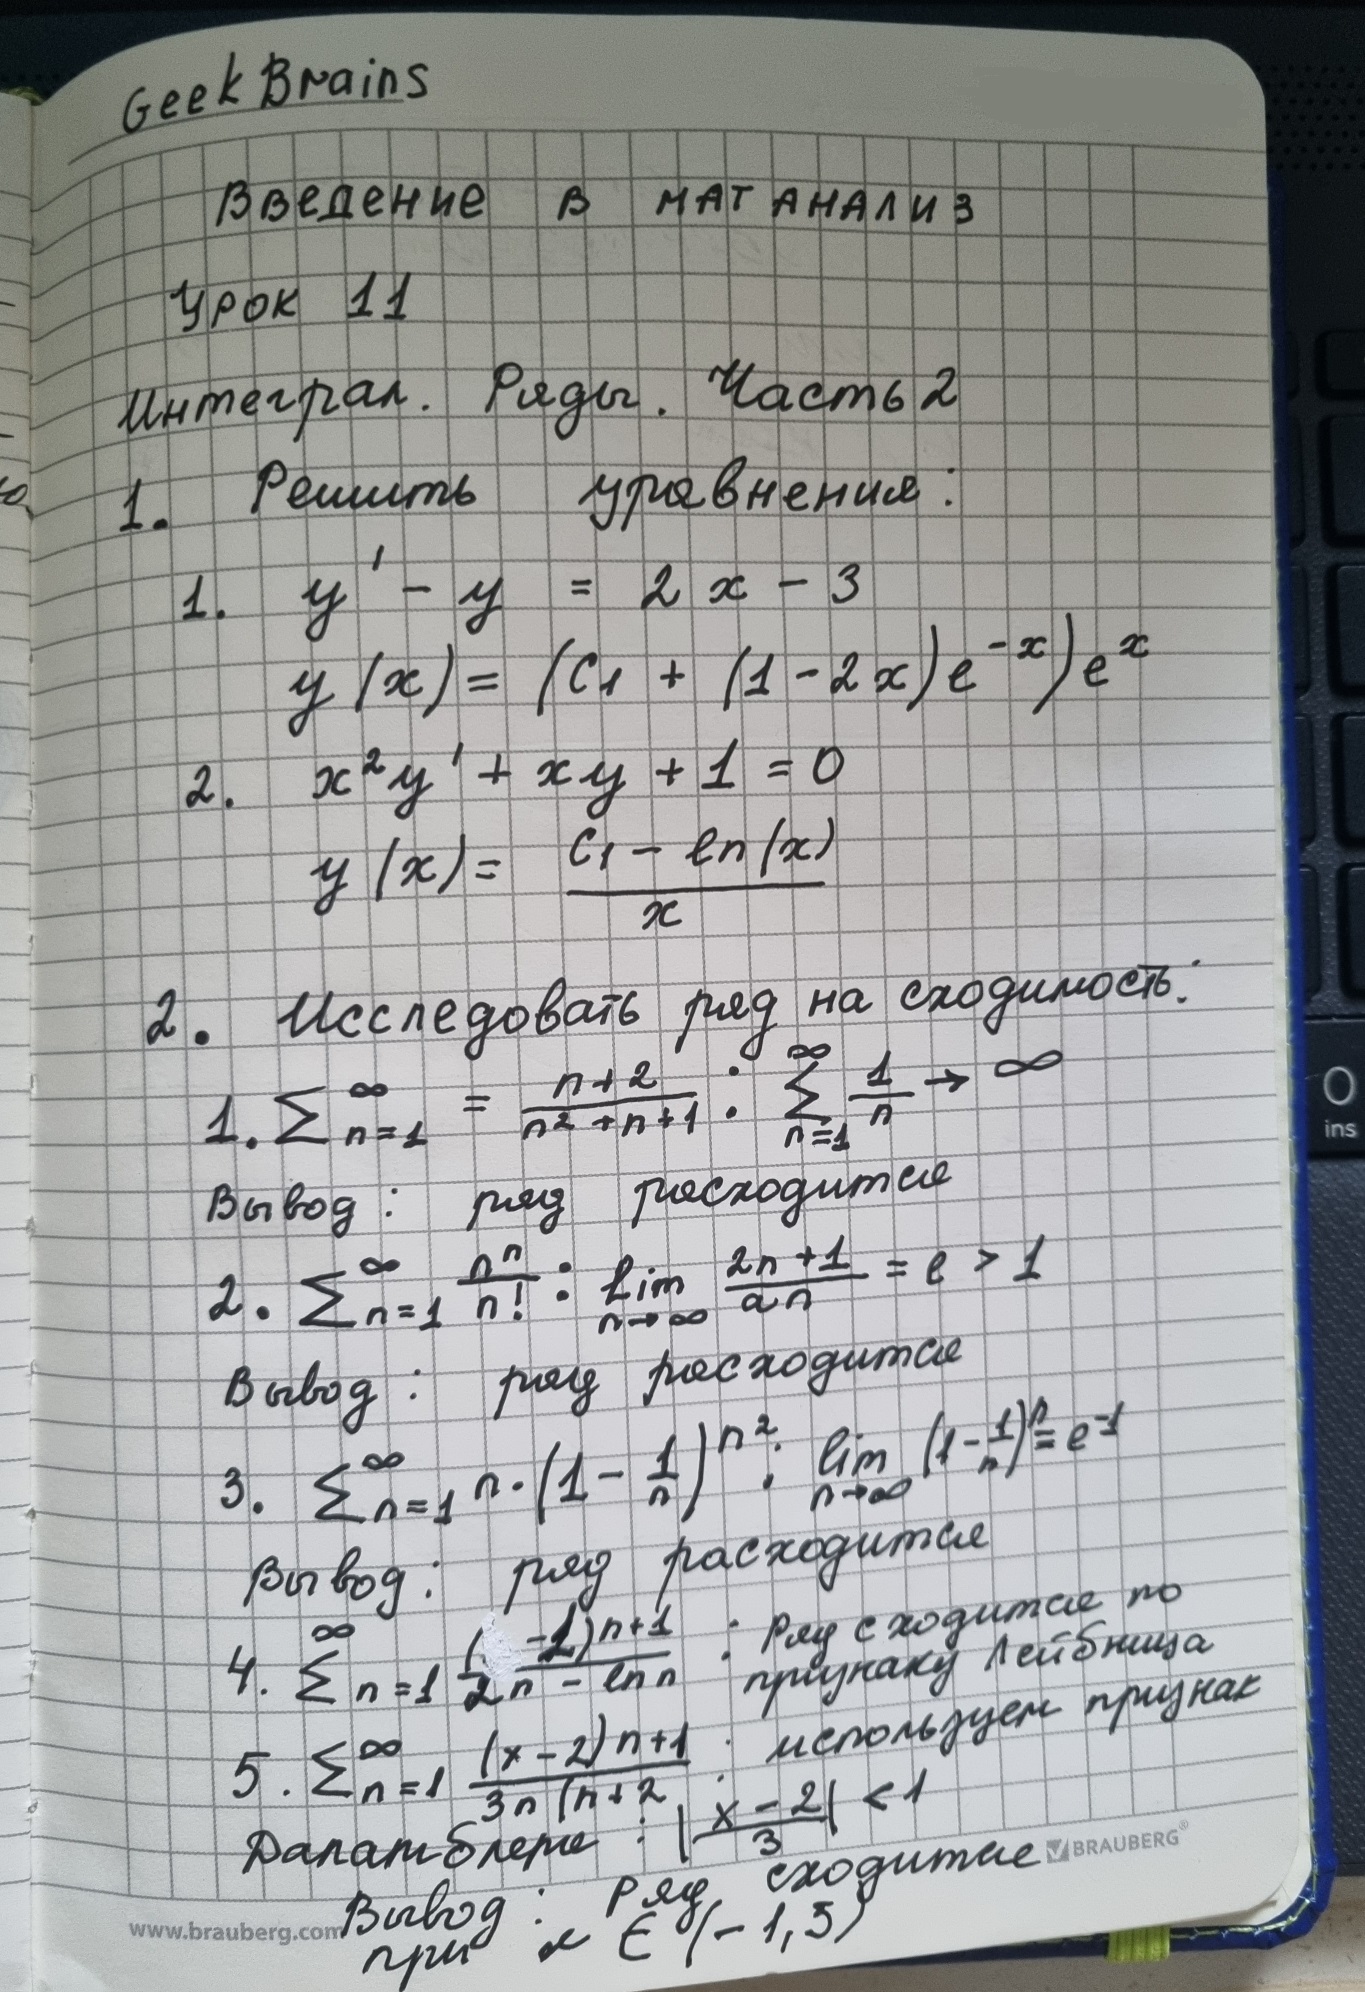 GeekBrains
Введение в мат анализ
Урок 11
Интеграл. Ряды. Часть 2
1. Решить уравнения:
1. y' - y = 2x - 3
y(x) = (C₁ + (1 - 2x)e⁻ˣ)eˣ
2. x²y' + xy + 1 = 0
y(x) = (C₁ - ln(x)) / x
2. Исследовать ряд на сходимость:
1. ∑ ∞ n=1 = (n+2)/(n²+n+1) : ∑ ∞ n=1 1/n → ∞
Вывод: ряд расходится
2. ∑ ∞ n=1 nⁿ/n! : lim n→∞ (2n+1)/(an) = e > 1
Вывод: ряд расходится
3. ∑ ∞ n=1 n·(1 - 1/n)^n² : lim n→∞ (1 - 1/n)ⁿ = e⁻¹
Вывод: ряд расходится
4. ∑ ∞ n=1 (-1)ⁿ⁺¹/(2n - ln n) : Ряд сходится по
признаку Лейбница
5. ∑ ∞ n=1 (x-2)ⁿ⁺¹/3n(n+2 : используем признак
Даламблера : |(x-2)/3| < 1
Вывод: Ряд сходится
при x ∈ (-1, 5)
BRAUBERG®
www.brauberg.com
0
ins